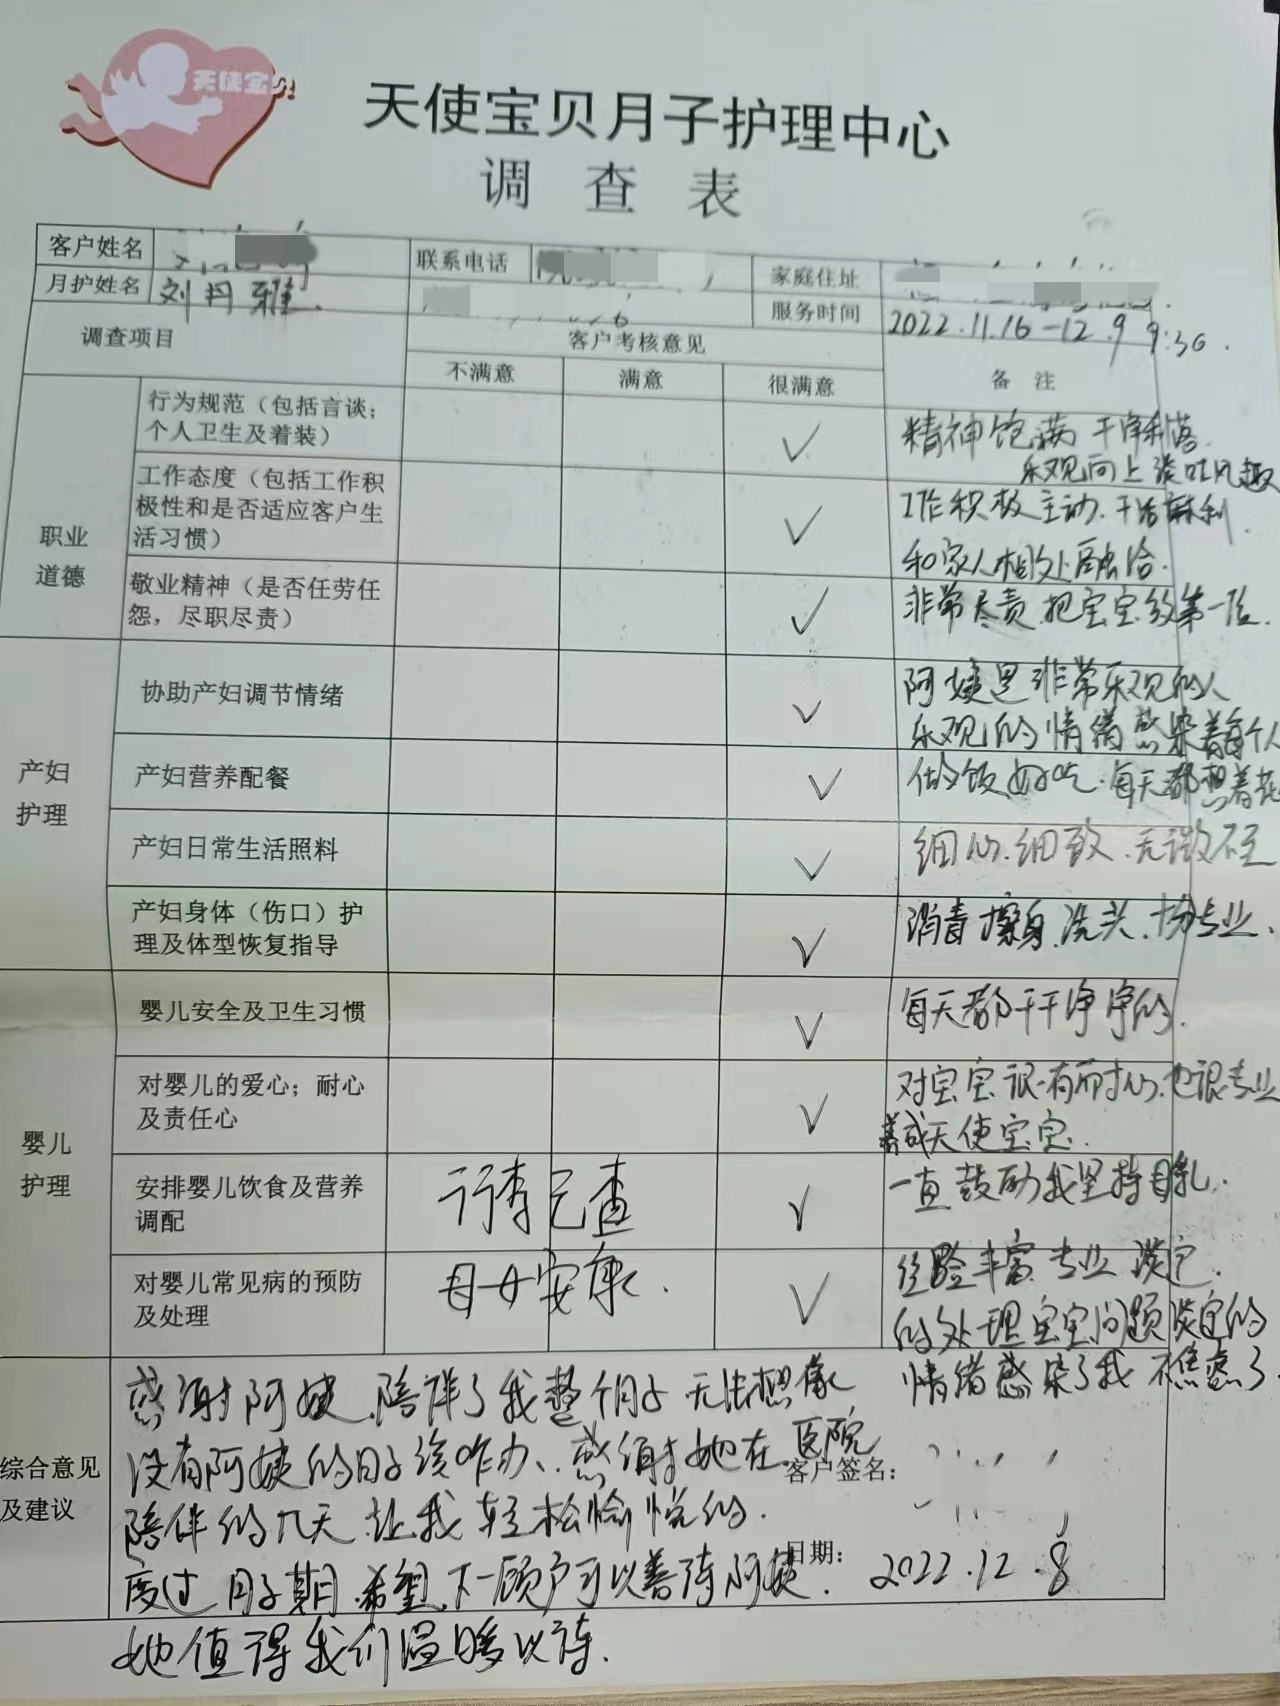 天使宝贝
天使宝贝月子护理中心
调查表
客户姓名 联系电话 家庭住址
月护姓名 刘丹雅 服务时间 2022.11.16-12.9 9:30.
调查项目 客户考核意见 备注
不满意 满意 很满意
职业道德
行为规范（包括言谈；个人卫生及着装） ✓ 精神饱满 干净利落.
乐观向上 谈吐风趣
工作态度（包括工作积极性和是否适应客户生活习惯） ✓ 工作积极主动.干活麻利
和家人相处融洽.
敬业精神（是否任劳任怨，尽职尽责） ✓ 非常尽责.把宝宝放第一位.
产妇护理
协助产妇调节情绪 ✓ 阿姨是非常乐观的人
乐观的情绪感染着每个人
产妇营养配餐 ✓ 做饭好吃.每天都想着花
产妇日常生活照料 ✓ 细心.细致.无微不至
产妇身体（伤口）护理及体型恢复指导 ✓ 消毒 擦身.洗头.十分专业.
婴儿护理
婴儿安全及卫生习惯 ✓ 每天都干干净净的.
对婴儿的爱心；耐心及责任心 ✓ 对宝宝很有耐心.也很专业
养成天使宝宝.
安排婴儿饮食及营养调配 ✓ 一直鼓励我坚持母乳.
行李已查
对婴儿常见病的预防及处理 ✓ 经验丰富.专业 淡定.
母女安康.
的处理宝宝问题 淡定的
情绪感染了我 不焦虑了.
综合意见及建议
感谢阿姨.陪伴了我整个月子 无法想像
没有阿姨的日子该咋办.感谢她在医院
陪伴的九天 让我轻松愉悦的
度过月子期.希望下一顾户可以善待阿姨.
她值得我们温暖以待.
客户签名：
日期： 2022.12.8